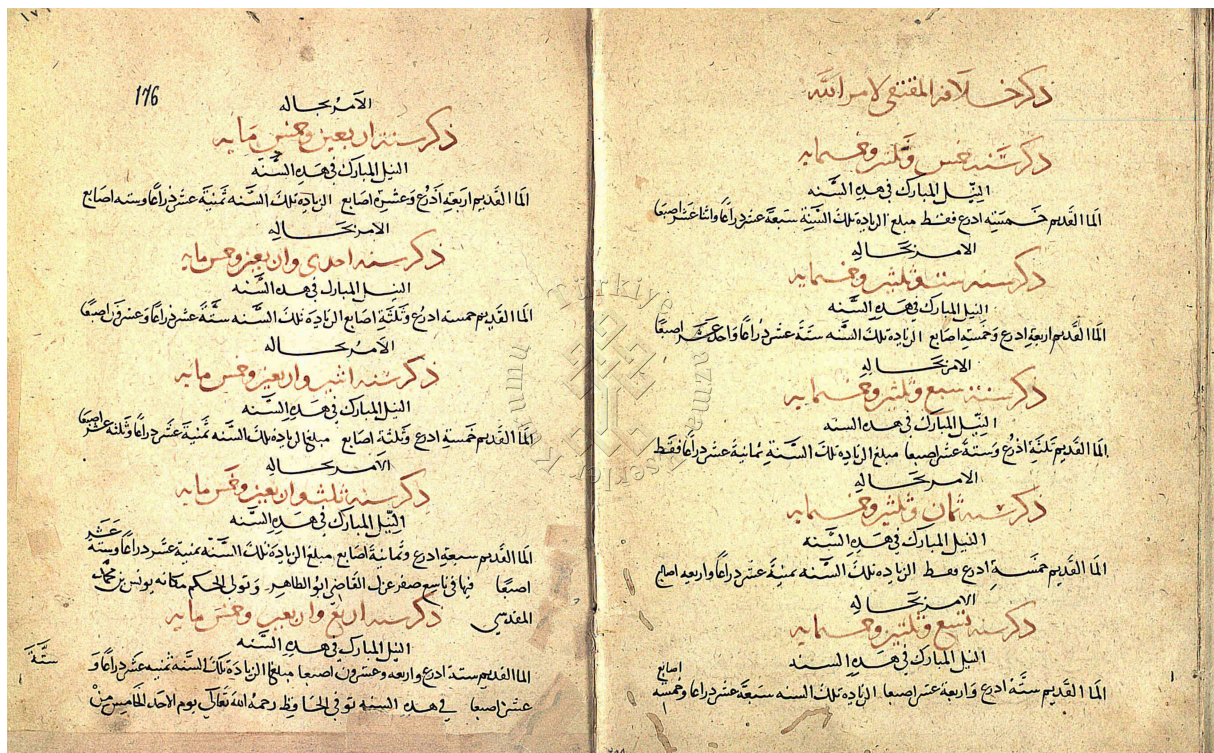 ذكر خلافة المقتفى لامر الله
ذكر سنه خمس وثلثين وخمسمايه
النيل المبارك فى هذه السنه
الما القديم خمسته ادرع فقط مبلغ الزياده تلك السنة سبعة عشر دراعا واثنا عشر اصبعا
الامر بحاله
ذكر سنه ست وثلثين وخمسمايه
النيل المبارك فى هذه السنه
الما القديم اربعة ادرع وخمسة اصابع الزياده تلك السنه ستة عشر دراعا واحد عشر اصبعا
الامر بحاله
ذكر سنة سبع وثلثين وخمسمايه
النيل المبارك فى هذه السنه
الما القديم ثلثة اذرع وستة عشر اصبعا مبلغ الزياده تلك السنة ثمانية عشر دراعا فقط
الامر بحاله
ذكر سنه ثمان وثلثين وخمسمايه
النيل المبارك فى هذه السنه
الما القديم خمسة ادرع فقط الزياده تلك السنه ثمنية عشر دراعا واربعه اصابع
الامر بحاله
ذكر سنه تسع وثلثين وخمسمايه
النيل المبارك فى هذه السنه
الما القديم ستة ادرع واربعة عشر اصبعا الزياده تلك السنه سبعة عشر دراعا وخمسه اصابع
176
الامر بحاله
ذكر سنة اربعين وخمس مايه
النيل المبارك فى هذه السنه
الما القديم اربعة ادرع وعشرة اصابع الزياده تلك السنه ثمنية عشر دراعا وسته اصابع
الامر بحاله
ذكر سنه احدى واربعين وخمس مايه
النيل المبارك فى هذه السنه
الما القديم خمسه ادرع وثلثة اصابع الزيادة تلك السنه ستة عشر دراعا وعشرون اصبعا
الامر بحاله
ذكر سنه اثنين واربعين وخمس مايه
النيل المبارك فى هذه السنه
الما القديم خمسة ادرع وثلثة اصابع مبلغ الزياده تلك السنه ثمنية عشر دراعا وثلثة عشر اصبعا
الامر بحاله
ذكر سنه ثلث واربعين وخمس مايه
النيل المبارك فى هذه السنه
الما القديم سبعة ادرع وثمانية اصابع مبلغ الزيادة تلك السنه ثمنية عشر دراعا وستة عشر
اصبعا فيها فى تاسع صفر عزل القاضى ابو الطاهر وتولى الحكم مكانه يونس بن محمد
المقدسى ذكر سنه اربع واربعين وخمس مايه
النيل المبارك فى هذه السنه
الما القديم ستة ادرع واربعه وعشرون اصبعا مبلغ الزيادة تلك السنة ثمنيه عشر دراعا و ستة
عشر اصبعا فى هذه السنه توفى الحافظ رحمه الله تعالى يوم الاحد الخامس من
Türkiye Yazma Eserler Kurumu